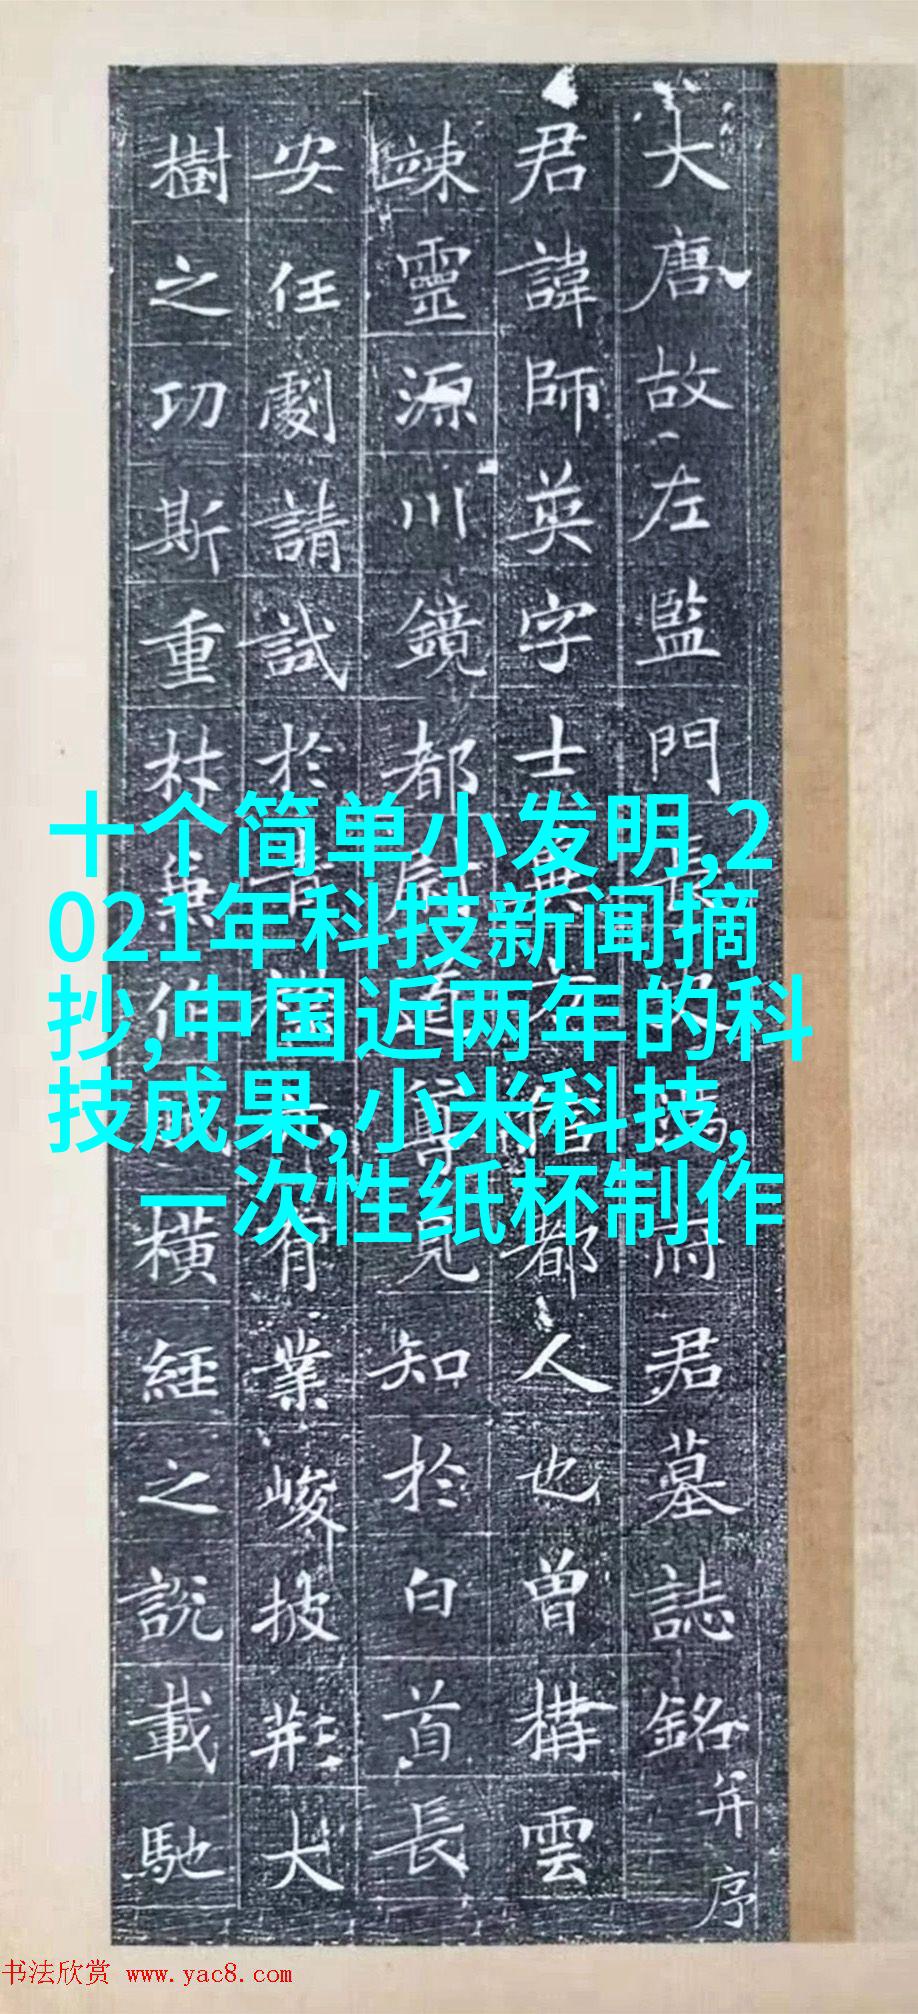 大唐故左監門長史馮府君墓誌銘并序
君諱師英字士方信都人也曾構雲
竦靈源川鏡都尉見知於白首長
安任劇請試於有業峻披荆大
樹之功斯重材兼橫經之說載馳
十个简单小发明,2
021年科技新闻摘
抄,中国近两年的科
技成果,小米科技,
一次性纸杯制作
书法欣赏 www.yac8.com